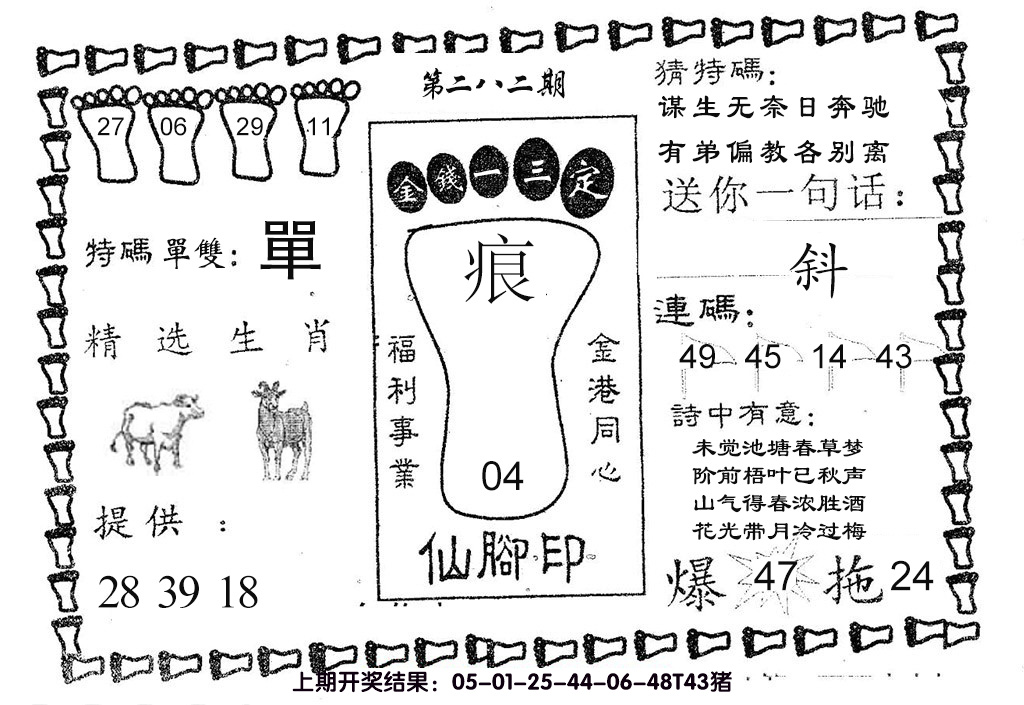 第二八二期
27 06 29 11
特碼單雙: 單
精选生肖
提供:
28 39 18
金錢一三定
痕
福利事業
金港同心
04
仙腳印
猜特碼:
谋生无奈日奔驰
有弟偏教各别离
送你一句话:
斜
連碼:
49 45 14 43
詩中有意:
未觉池塘春草梦
阶前梧叶已秋声
山气得春浓胜酒
花光带月冷过梅
爆 47 拖 24
上期开奖结果：05-01-25-44-06-48T43猪